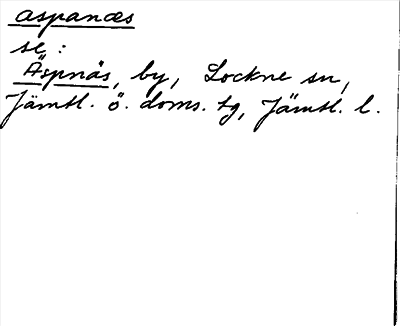 aspanæs
se:
Äspnäs, by, Lockne sn,
Jämtl. ö. doms. tg, Jämtl. l.